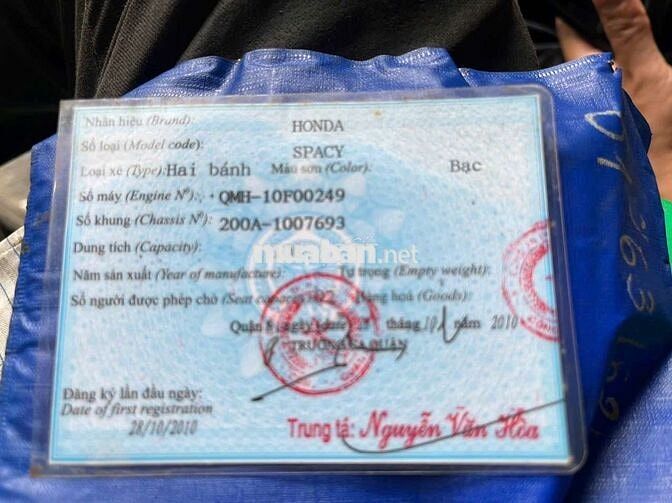 Nhãn hiệu (Brand): HONDA
Số loại (Model code): SPACY
Loại xe (Type): Hai bánh Màu sơn (Color): Bạc
Số máy (Engine Nº): QMH-10F00249
Số khung (Chassis Nº): 200A-1007693
Dung tích (Capacity):
muaban.net
Năm sản xuất (Year of manufacture): Tự trọng (Empty weight):
Số người được phép chở (Seat capacity): 2 Hàng hoá (Goods):
Quận 8, ngày (date) tháng 10 năm 2010
TRƯỞNG CA QUẬN
Đăng ký lần đầu ngày:
Date of first registration
28/10/2010
Trung tá: Nguyễn Văn Hòa